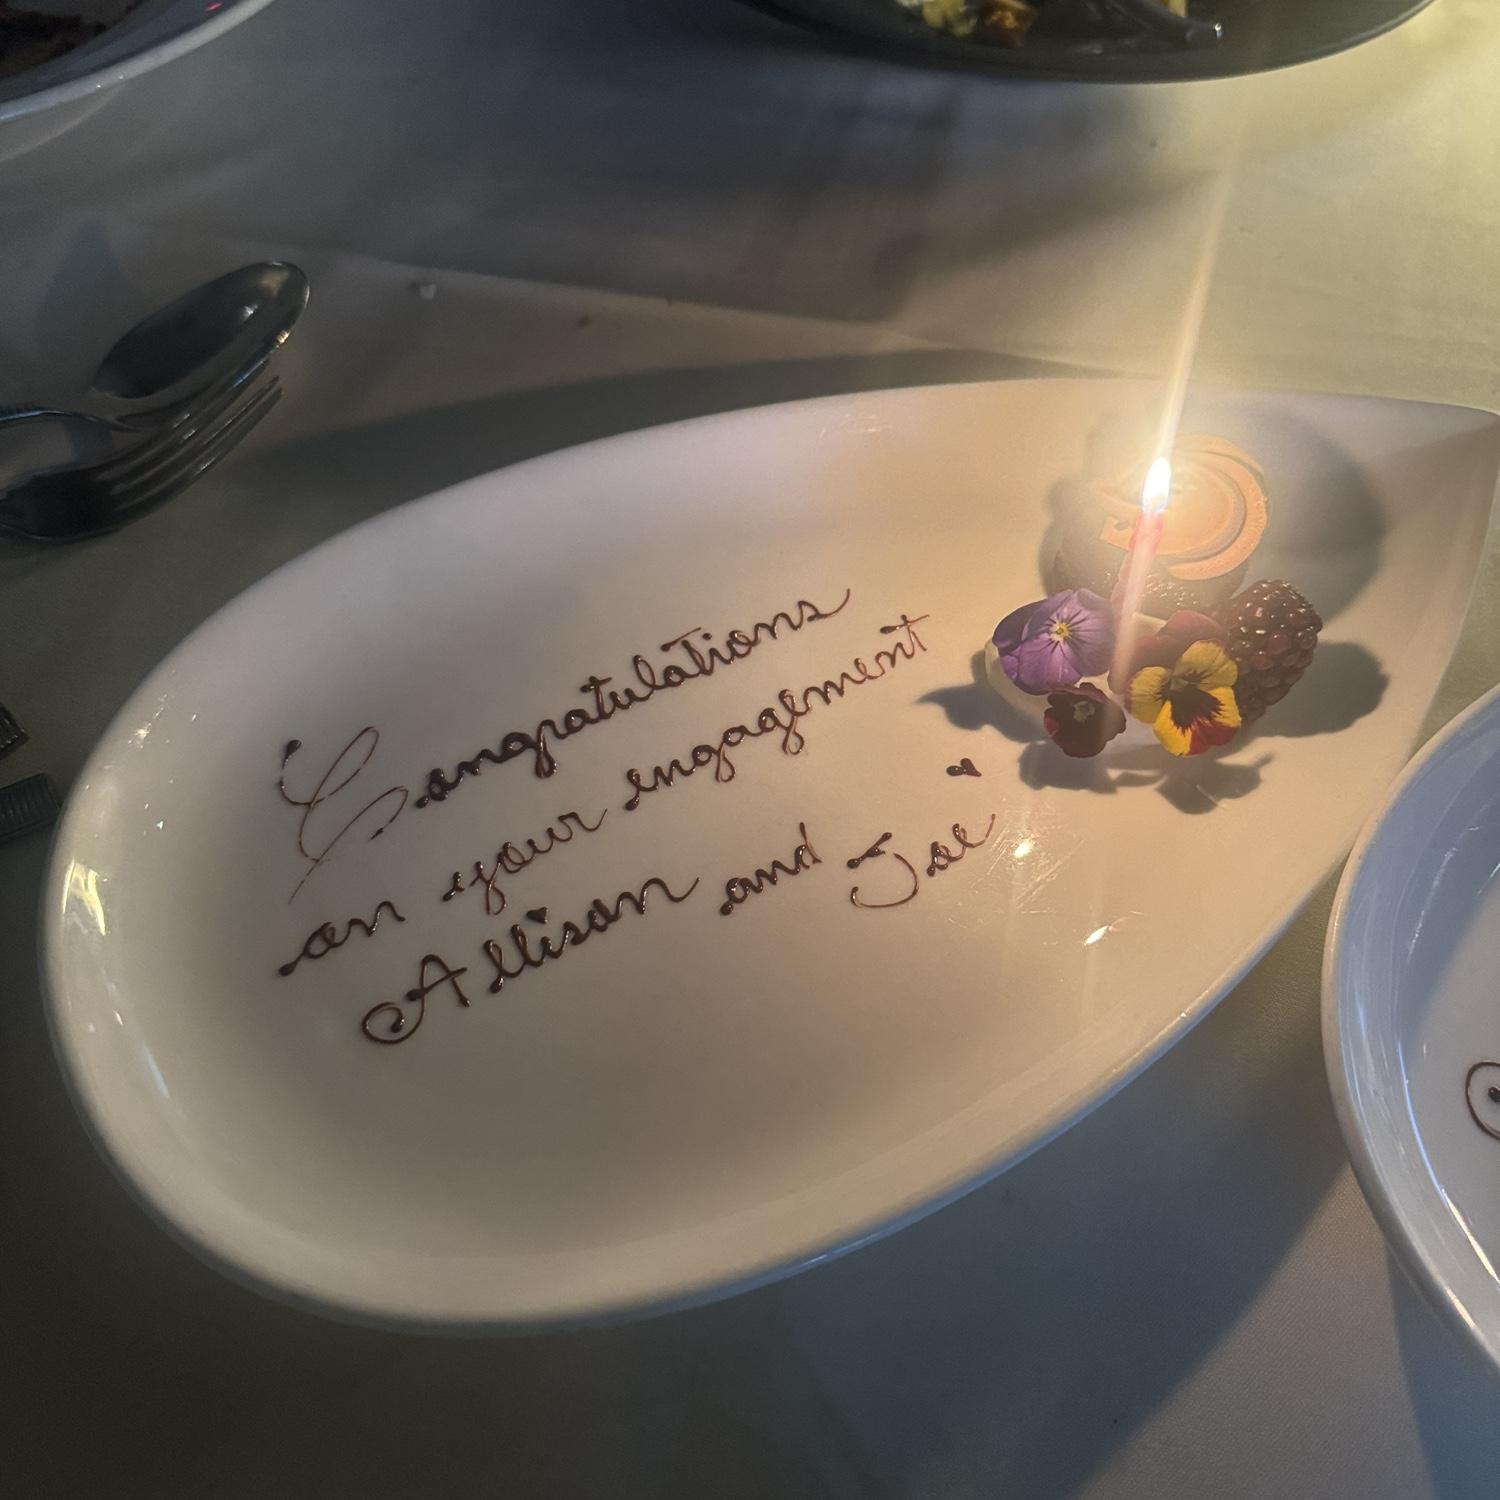 Congratulations
on your engagement
Allison and Joe